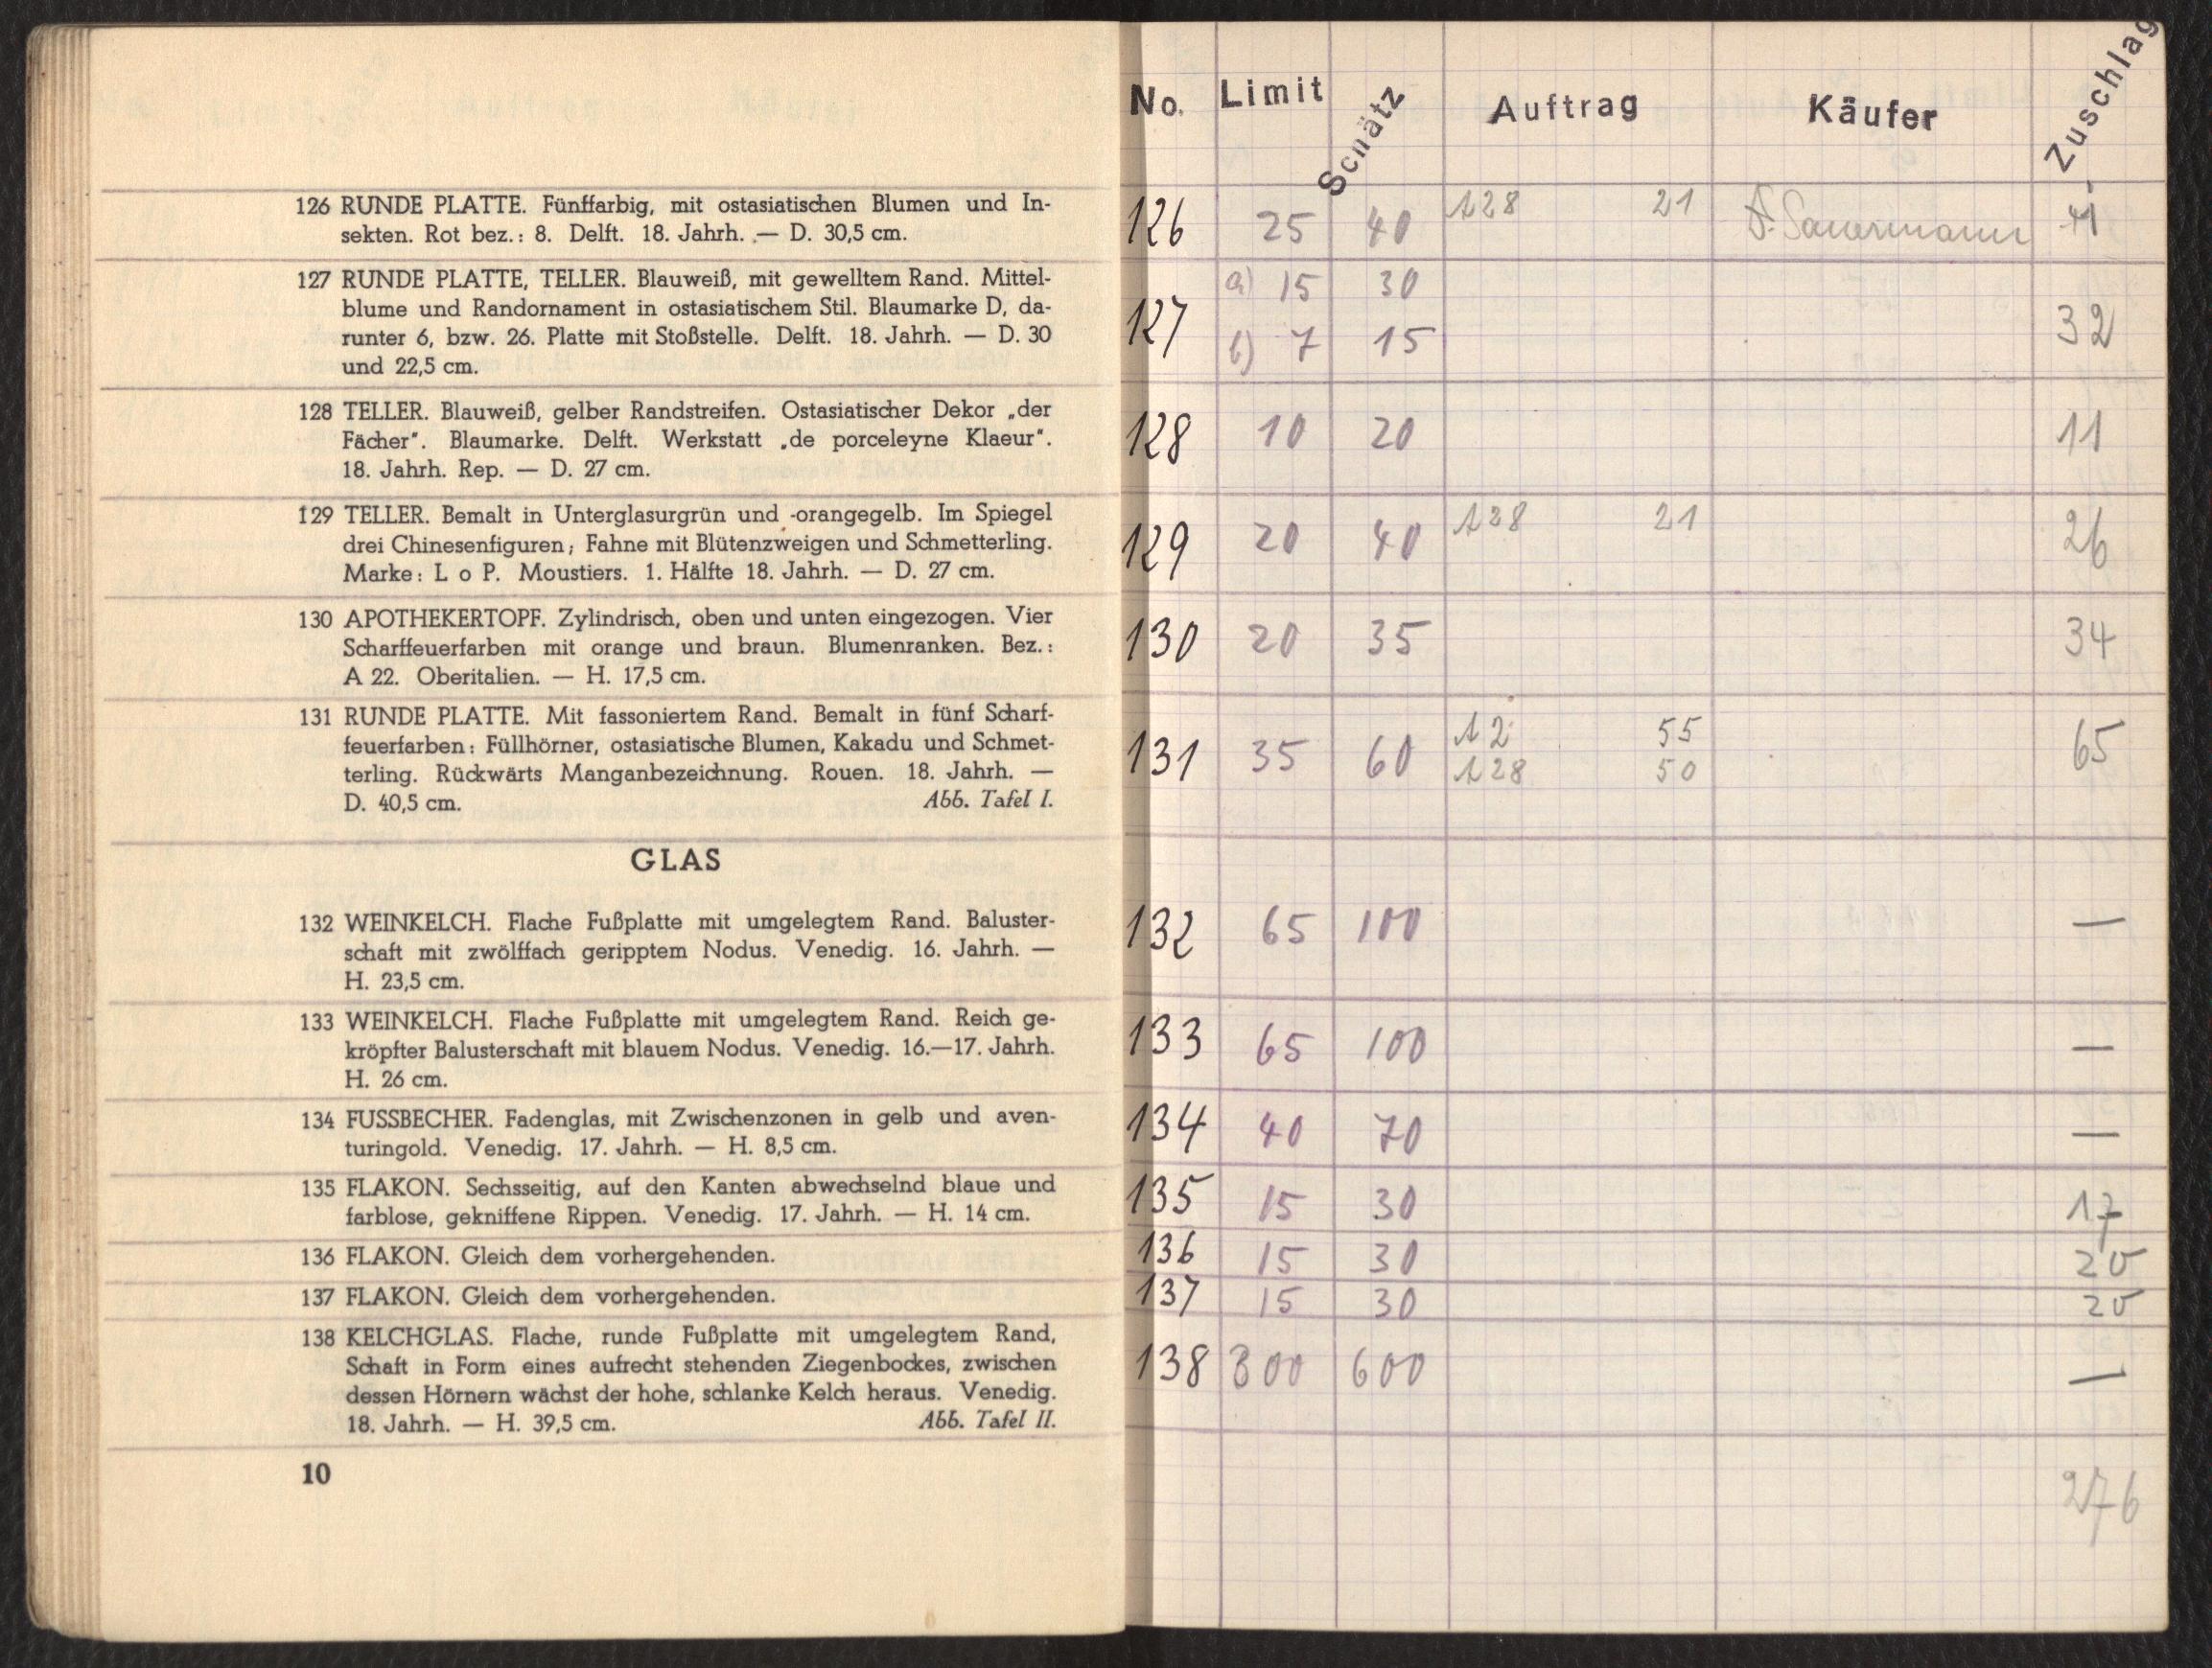 126 RUNDE PLATTE. Fünffarbig, mit ostasiatischen Blumen und In-
sekten. Rot bez.: 8. Delft. 18. Jahrh. — D. 30,5 cm.
127 RUNDE PLATTE, TELLER. Blauweiß, mit gewelltem Rand. Mittel-
blume und Randornament in ostasiatischem Stil. Blaumarke D, da-
runter 6, bzw. 26. Platte mit Stoßstelle. Delft. 18. Jahrh. — D. 30
und 22,5 cm.
128 TELLER. Blauweiß, gelber Randstreifen. Ostasiatischer Dekor „der
Fächer". Blaumarke. Delft. Werkstatt „de porceleyne Klaeur".
18. Jahrh. Rep. — D. 27 cm.
129 TELLER. Bemalt in Unterglasurgrün und -orangegelb. Im Spiegel
drei Chinesenfiguren; Fahne mit Blütenzweigen und Schmetterling.
Marke: L o P. Moustiers. 1. Hälfte 18. Jahrh. — D. 27 cm.
130 APOTHEKERTOPF. Zylindrisch, oben und unten eingezogen. Vier
Scharffeuerfarben mit orange und braun. Blumenranken. Bez.:
A 22. Oberitalien. — H. 17,5 cm.
131 RUNDE PLATTE. Mit fassoniertem Rand. Bemalt in fünf Scharf-
feuerfarben: Füllhörner, ostasiatische Blumen, Kakadu und Schmet-
terling. Rückwärts Manganbezeichnung. Rouen. 18. Jahrh. —
D. 40,5 cm. Abb. Tafel I.
GLAS
132 WEINKELCH. Flache Fußplatte mit umgelegtem Rand. Baluster-
schaft mit zwölffach geripptem Nodus. Venedig. 16. Jahrh. —
H. 23,5 cm.
133 WEINKELCH. Flache Fußplatte mit umgelegtem Rand. Reich ge-
kröpfter Balusterschaft mit blauem Nodus. Venedig. 16.—17. Jahrh.
H. 26 cm.
134 FUSSBECHER. Fadenglas, mit Zwischenzonen in gelb und aven-
turingold. Venedig. 17. Jahrh. — H. 8,5 cm.
135 FLAKON. Sechsseitig, auf den Kanten abwechselnd blaue und
farblose, gekniffene Rippen. Venedig. 17. Jahrh. — H. 14 cm.
136 FLAKON. Gleich dem vorhergehenden.
137 FLAKON. Gleich dem vorhergehenden.
138 KELCHGLAS. Flache, runde Fußplatte mit umgelegtem Rand,
Schaft in Form eines aufrecht stehenden Ziegenbockes, zwischen
dessen Hörnern wächst der hohe, schlanke Kelch heraus. Venedig.
18. Jahrh. — H. 39,5 cm. Abb. Tafel II.
10
No. Limit Schätz Auftrag Käufer Zuschlag
126 25 40 A28 21 Sauermann 41
127 a) 15 30
b) 7 15 32
128 10 20 11
129 20 40 A28 21 26
130 20 35 34
131 35 60 A2 55 65
A28 50
132 65 100 —
133 65 100 —
134 40 70 —
135 15 30 17
136 15 30 25
137 15 30 25
138 300 600 —
276